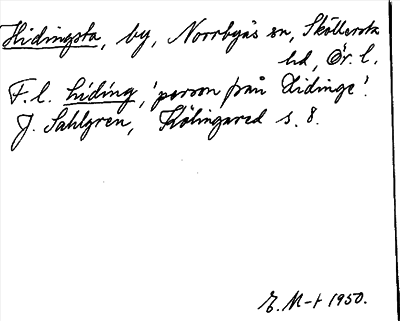 Hidingsta, by, Norrbyås sn, Sköllersta
hd, Ör. l.
F. l. hiding, 'person från Lidinge'.
J. Sahlgren, Kölingared s. 8.
E. M-t 1950.